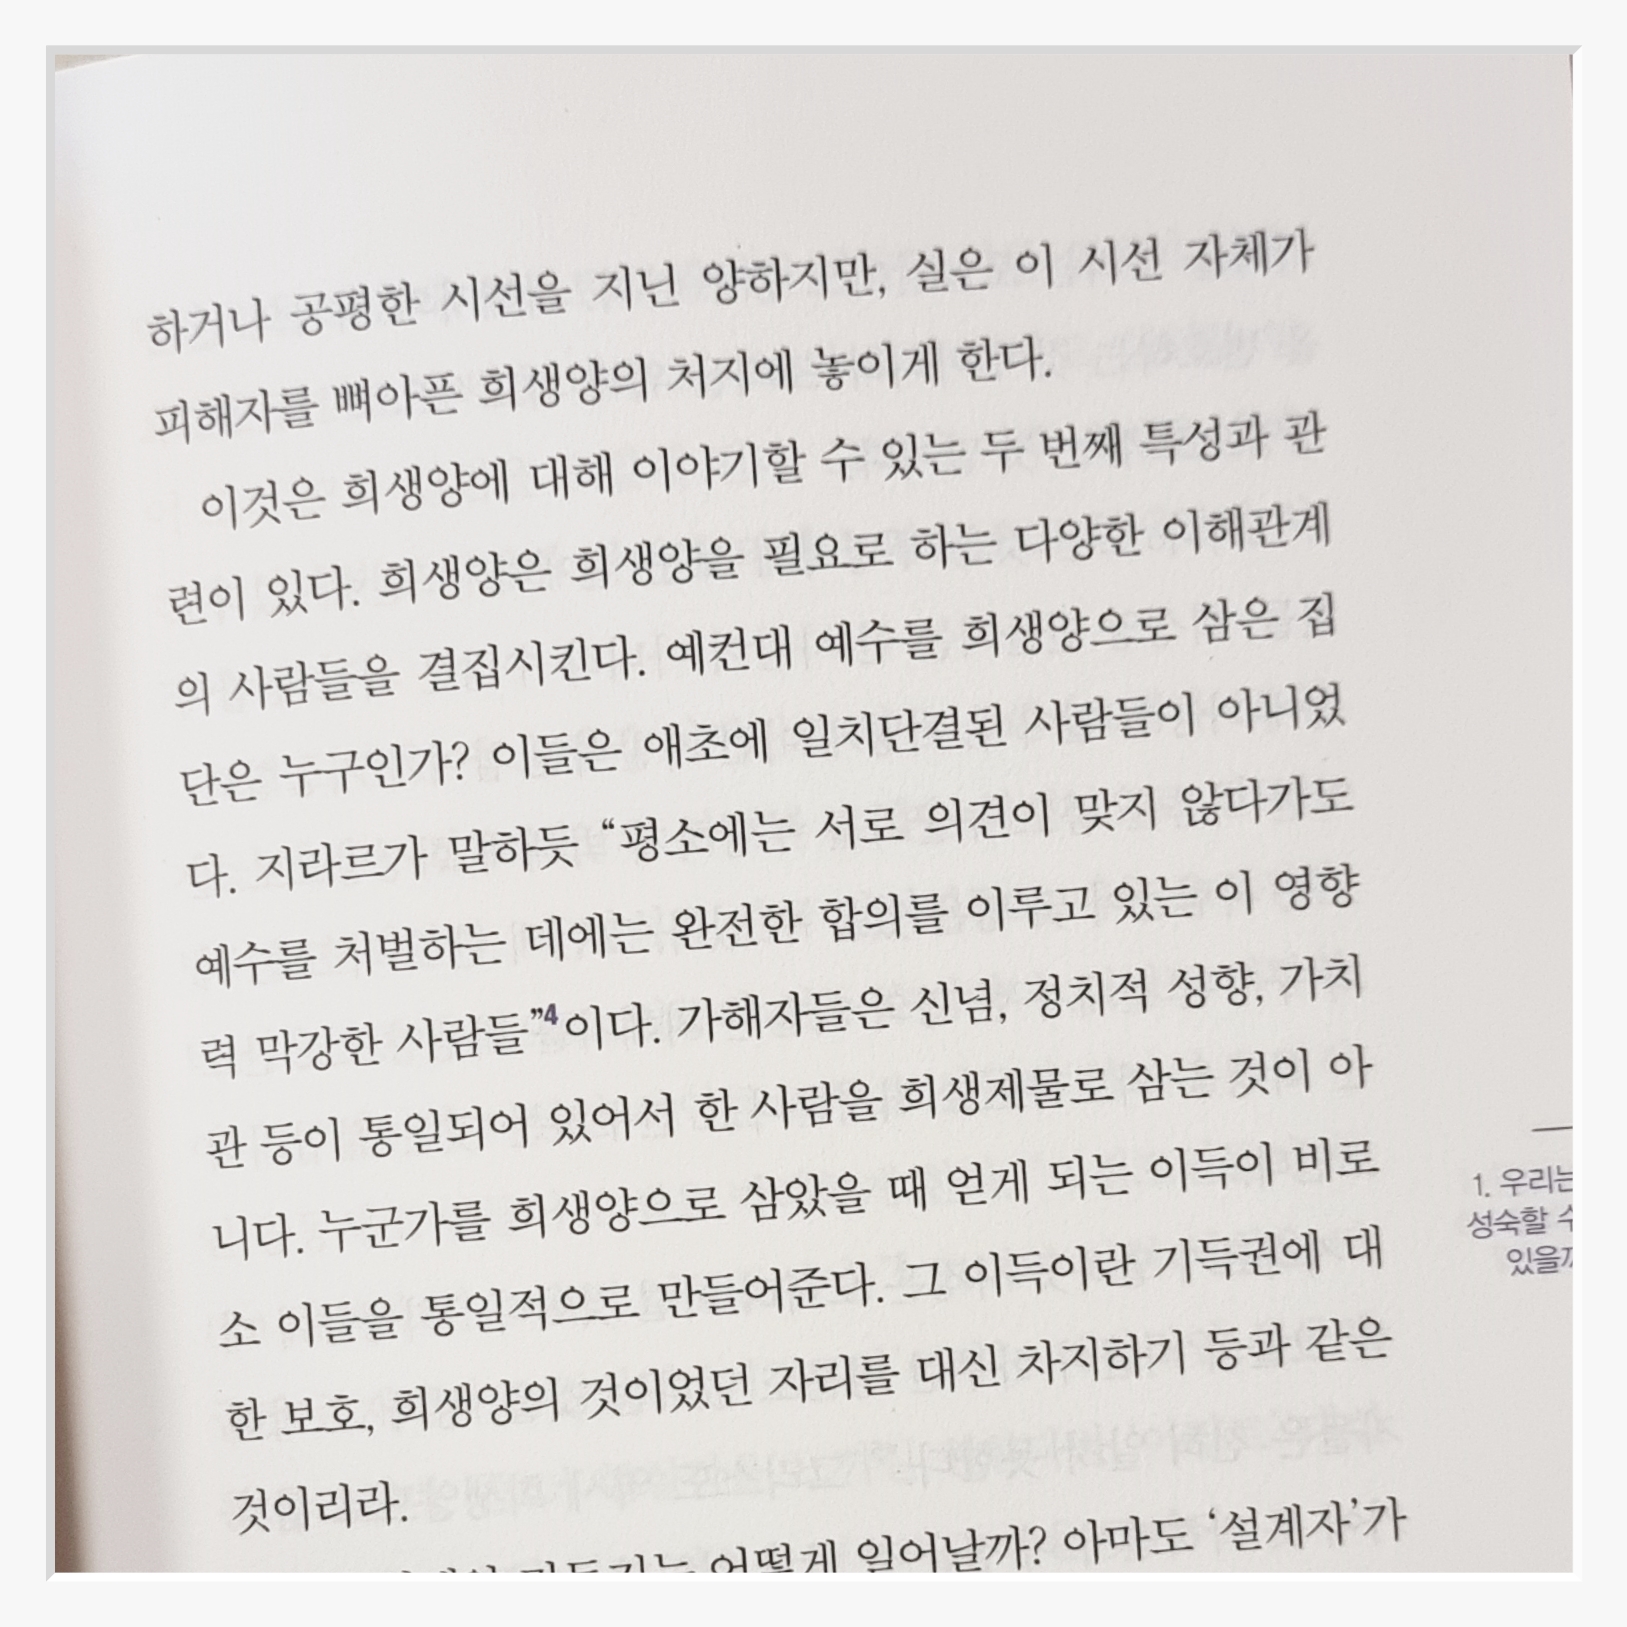 하거나 공평한 시선을 지닌 양하지만, 실은 이 시선 자체가
피해자를 뼈아픈 희생양의 처지에 놓이게 한다.
이것은 희생양에 대해 이야기할 수 있는 두 번째 특성과 관
련이 있다. 희생양은 희생양을 필요로 하는 다양한 이해관계
의 사람들을 결집시킨다. 예컨대 예수를 희생양으로 삼은 집
단은 누구인가? 이들은 애초에 일치단결된 사람들이 아니었
다. 지라르가 말하듯 “평소에는 서로 의견이 맞지 않다가도
예수를 처벌하는 데에는 완전한 합의를 이루고 있는 이 영향
력 막강한 사람들”4이다. 가해자들은 신념, 정치적 성향, 가치
관 등이 통일되어 있어서 한 사람을 희생제물로 삼는 것이 아
니다. 누군가를 희생양으로 삼았을 때 얻게 되는 이득이 비로
소 이들을 통일적으로 만들어준다. 그 이득이란 기득권에 대
한 보호, 희생양의 것이었던 자리를 대신 차지하기 등과 같은
것이리라.
어떻게 일어날까? 아마도 ‘설계자’가
1. 우리는
성숙할